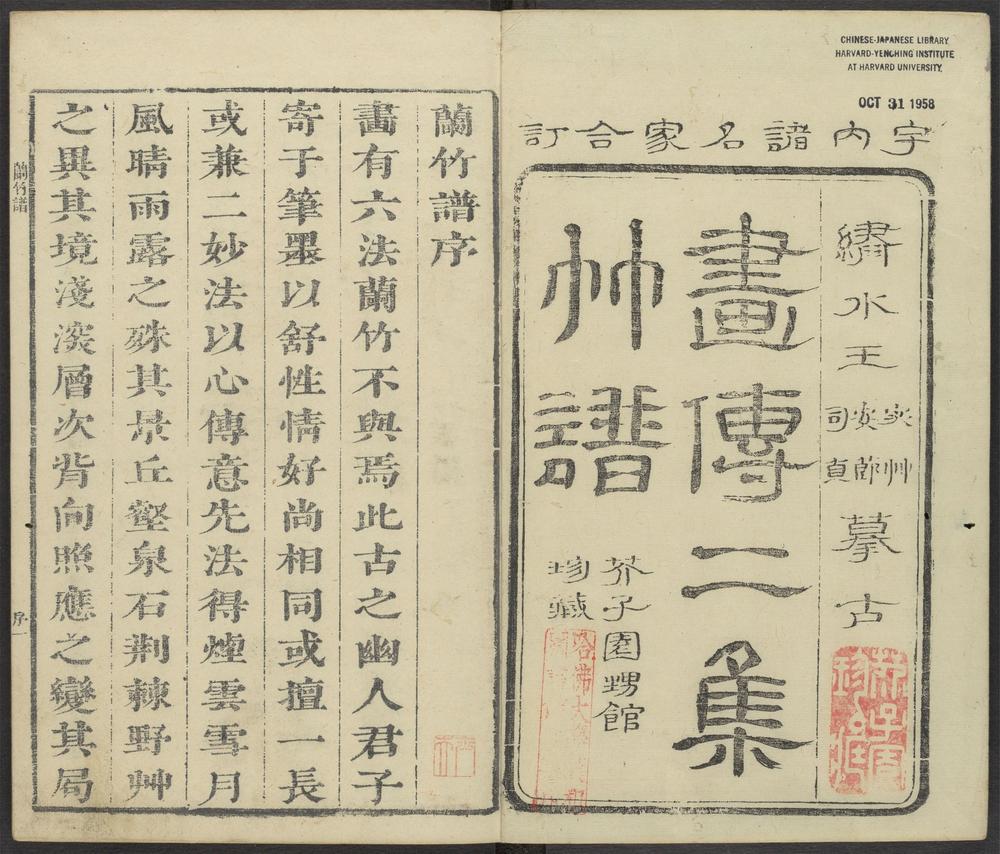 CHINESE-JAPANESE LIBRARY
HARVARD-YENCHING INSTITUTE
AT HARVARD UNIVERSITY
OCT 31 1958
宇內諸名家合訂
繡水王
宓草
安節
司直
摹古
畫傳二集
竹譜
芥子園甥館
珍藏
蘭竹譜序
畫有六法蘭竹不與焉此古之幽人君子
寄于筆墨以舒性情好尚相同或擅一長
或兼二妙法以心傳意先法得煙雲雪月
風晴雨露之殊其景丘壑泉石荆棘野艸
之異其境淺深層次背向照應之變其局
蘭竹譜
序一